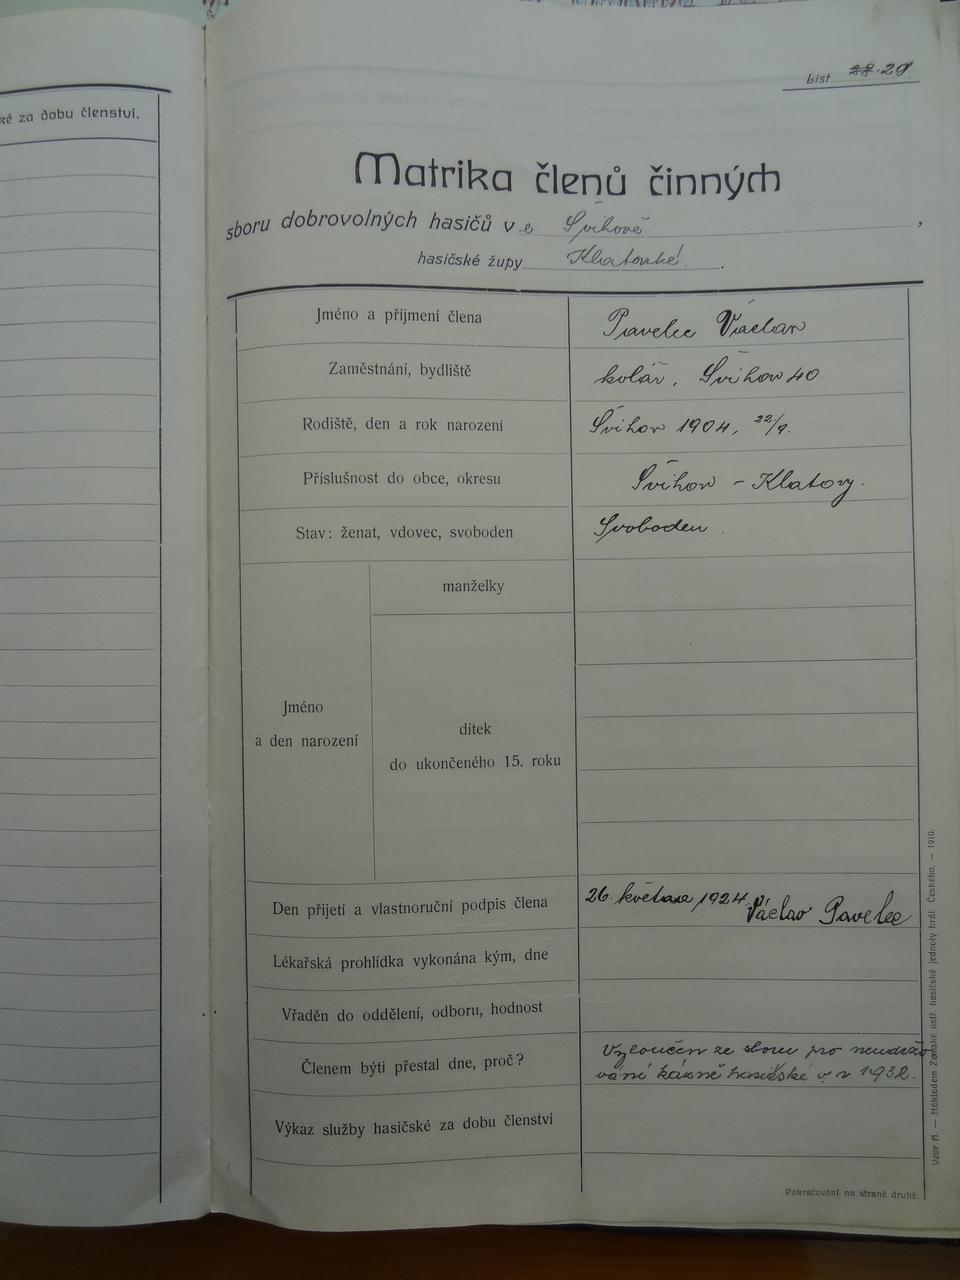 ké za dobu členství.
list 28. 29.
Matrika členů činných
sboru dobrovolných hasičů ve Švihově,
hasičské župy Klatovské.
Jméno a příjmení člena Pavelec Václav
Zaměstnání, bydliště kolář, Švihov 40.
Rodiště, den a rok narození Švihov 1904, 22/9.
Příslušnost do obce, okresu Švihov – Klatovy.
Stav: ženat, vdovec, svoboden Svoboden.
manželky
Jméno
a den narození
dítek
do ukončeného 15. roku
Den přijetí a vlastnoruční podpis člena 26. května 1924. Václav Pavelec
Lékařská prohlídka vykonána kým, dne
Vřaděn do oddělení, odboru, hodnost
Členem býti přestal dne, proč? Vyloučen ze sboru pro neudržo
vání kázně hasičské v r 1932.
Výkaz služby hasičské za dobu členství
Pokračování na straně druhé.
Vzor A. — Nákladem Zemské ústř. hasičské jednoty král. Českého. — 1910.